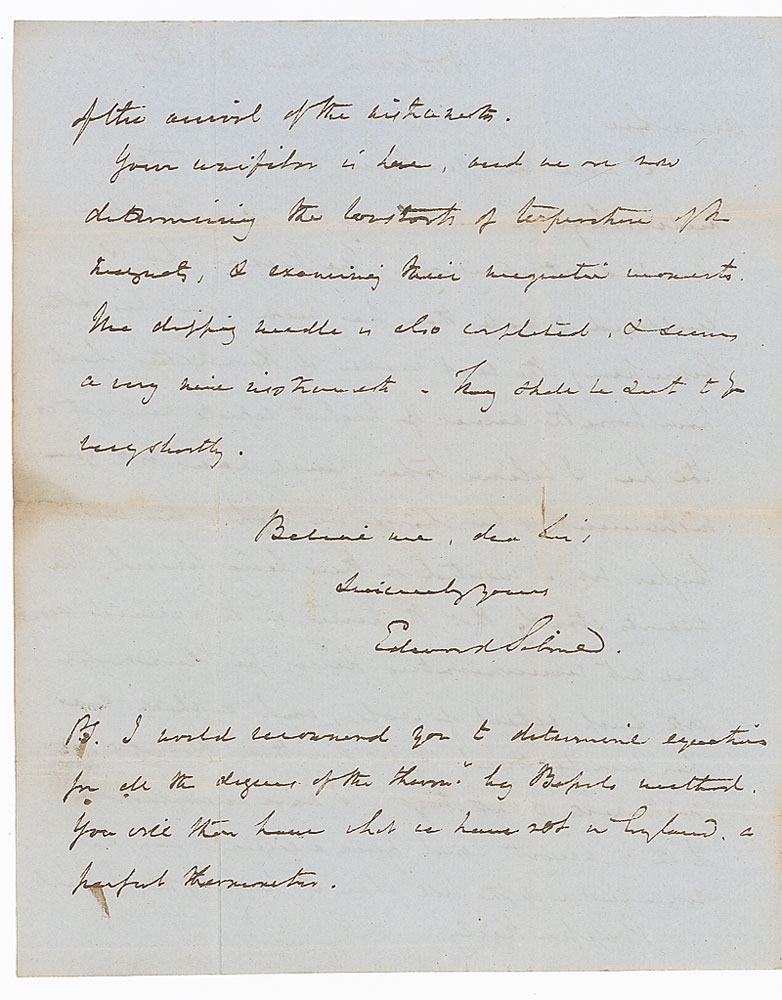 of the arrival of the instruments.
Your unifilar is here, and we are now
determining the constants of temperature of the
magnets, & examining their magnetic moments.
The dipping needle is also completed, & seems
a very nice instrument - They shall be sent to you
very shortly.
Believe me, dear Sir,
Sincerely yours
Edward Sabine.
PS. I would recommend you to determine equations
for all the degrees of the thermr by Bessels method.
You will then have what we have not in England, a
perfect thermometer.